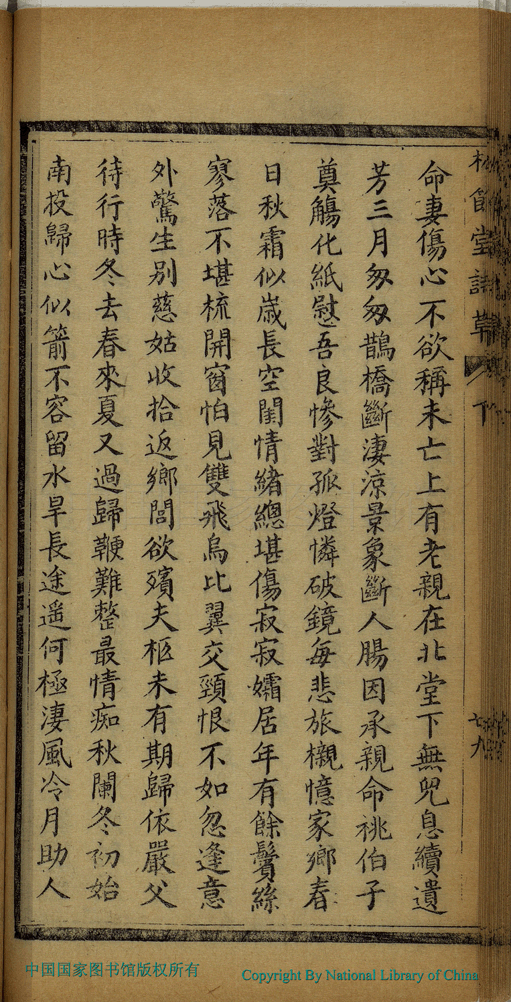 命妻傷心不欲稱未亡上有老親在北堂下無兒息續遺
芳三月匆匆鵲橋斷淒涼景象斷人腸因承親命祧伯子
奠觴化紙慰吾良慘對孤燈憐破鏡每悲旅櫬憶家鄉春
日秋霜似歲長空閨情緒總堪傷寂寂孀居年有餘鬢絲
寥落不堪梳開窗怕見雙飛鳥比翼交頸恨不如忽逢意
外驚生別慈姑收拾返鄉閭欲殯夫柩未有期歸依嚴父
待行時冬去春來夏又過歸鞭難整最情痴秋闌冬初始
南投歸心似箭不容留水旱長途遥何極淒風冷月助人
堂詩草
下
七九
中国国家图书馆版权所有
Copyright By National Library of China